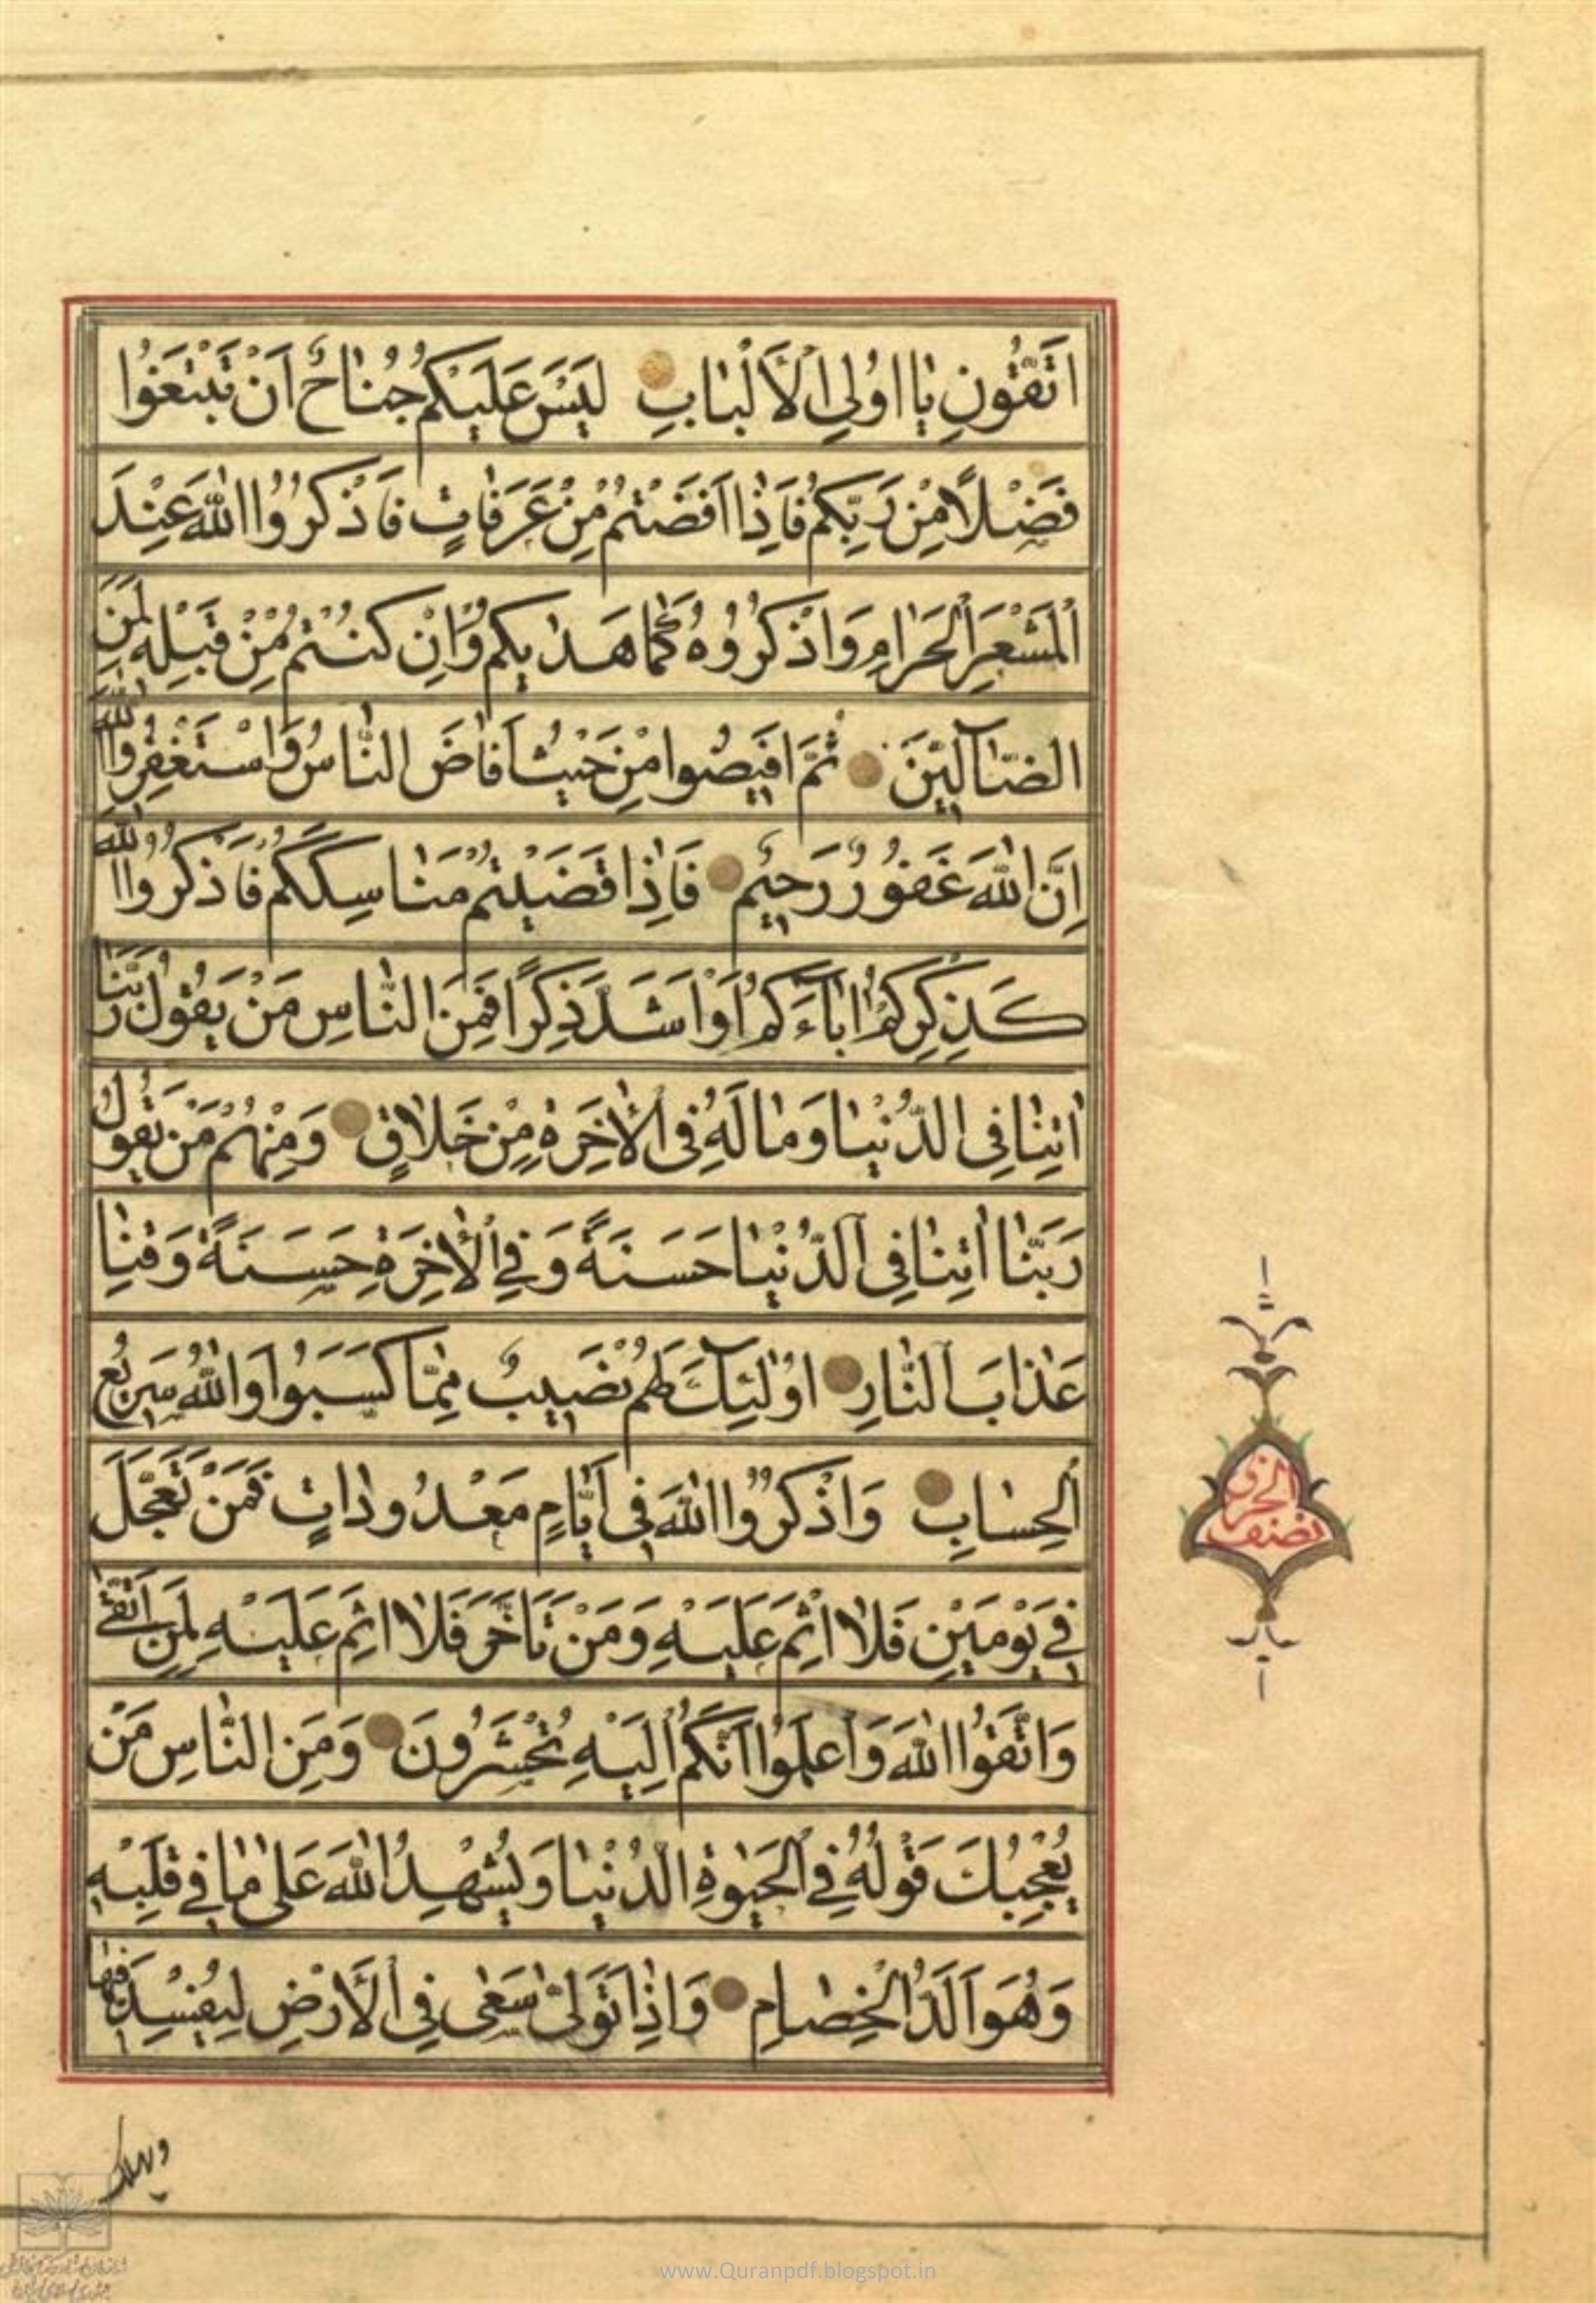 اتَّقُونِ يَا اُولِي الْاَلْبَابِ لَيْسَ عَلَيْكُمْ جُنَاحٌ اَنْ تَبْتَغُوا
فَضْلًا مِنْ رَبِّكُمْ فَاِذَا اَفَضْتُمْ مِنْ عَرَفَاتٍ فَاذْكُرُوا اللهَ عِنْدَ
الْمَشْعَرِ الْحَرَامِ وَاذْكُرُوهُ كَمَا هَدٰيكُمْ وَاِنْ كُنْتُمْ مِنْ قَبْلِهِ لَمِنَ
الضَّآلِّينَ ثُمَّ اَفِيضُوا مِنْ حَيْثُ اَفَاضَ النَّاسُ وَاسْتَغْفِرُوا اللهَ
اِنَّ اللهَ غَفُورٌ رَحِيمٌ فَاِذَا قَضَيْتُمْ مَنَاسِكَكُمْ فَاذْكُرُوا اللهَ
كَذِكْرِكُمْ اٰبَآءَكُمْ اَوْ اَشَدَّ ذِكْرًا فَمِنَ النَّاسِ مَنْ يَقُولُ رَبَّنَا
اٰتِنَا فِي الدُّنْيَا وَمَا لَهُ فِي الْاٰخِرَةِ مِنْ خَلَاقٍ وَمِنْهُمْ مَنْ يَقُولُ
رَبَّنَا اٰتِنَا فِي الدُّنْيَا حَسَنَةً وَفِي الْاٰخِرَةِ حَسَنَةً وَقِنَا
عَذَابَ النَّارِ اُولٰئِكَ لَهُمْ نَصِيبٌ مِمَّا كَسَبُوا وَاللهُ سَرِيعُ
الْحِسَابِ وَاذْكُرُوا اللهَ فِي اَيَّامٍ مَعْدُودَاتٍ فَمَنْ تَعَجَّلَ
فِي يَوْمَيْنِ فَلَا اِثْمَ عَلَيْهِ وَمَنْ تَاَخَّرَ فَلَا اِثْمَ عَلَيْهِ لِمَنِ اتَّقٰى
وَاتَّقُوا اللهَ وَاعْلَمُوا اَنَّكُمْ اِلَيْهِ تُحْشَرُونَ وَمِنَ النَّاسِ مَنْ
يُعْجِبُكَ قَوْلُهُ فِي الْحَيٰوةِ الدُّنْيَا وَيُشْهِدُ اللهَ عَلٰى مَا فِي قَلْبِهِ
وَهُوَ اَلَدُّ الْخِصَامِ وَاِذَا تَوَلّٰى سَعٰى فِي الْاَرْضِ لِيُفْسِدَ فِيهَا
نصف الحزب
ويهلك
www.Quranpdf.blogspot.in